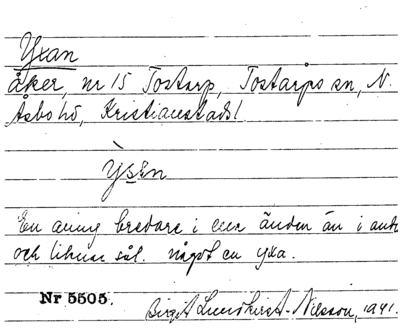 Yxan
åker, nr 15 Tostarp, Tostarps sn, N.
Åsbo hd, Kristianstads l
Ỳsɛn
En aning bredare i ena änden än i andr
och liknar sål. något en yxa.
Nr 5505.
Birgit Lundkvist-Nilsson, 1941.